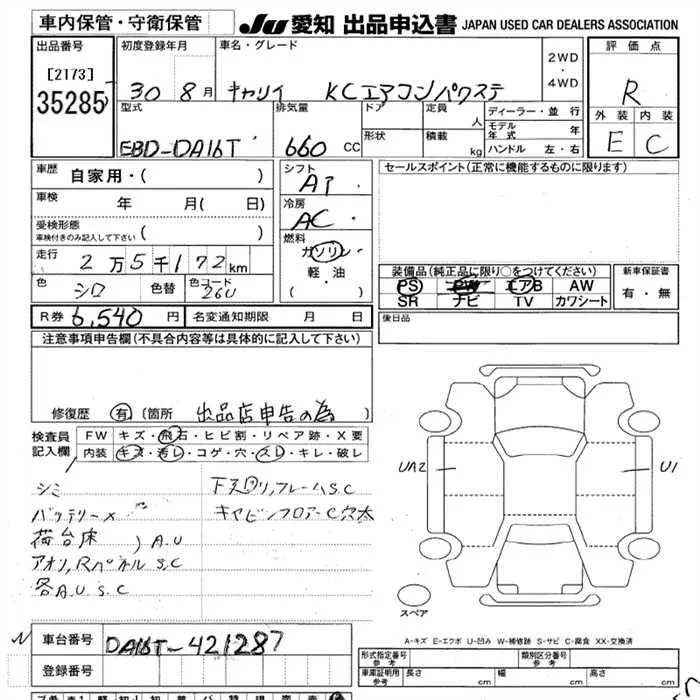 車内保管・守衛保管
JU 愛知 出品申込書 JAPAN USED CAR DEALERS ASSOCIATION
出品番号
[2173]
35285
初度登録年月
30 8月
車名・グレード
キャリイ KCエアコンパワステ
2WD
・
4WD
評価点
R
外装 内装
E C
型式
EBD-DA16T
排気量
660 CC
ドア
形状
定員 人
積載 kg
ディーラー・並行
モデル年式 年
ハンドル 左・右
車歴
自家用・( )
車検
年 月( 日)
受検形態
車検付きのみ記入して下さい ( )
走行
2万5千172km
色
シロ
色替
色コード
26U
シフト
AT
冷房
AC
燃料
ガソリン
軽油
( ・ )
セールスポイント(正常に機能するものに限ります)
装備品(純正品に限り〇をつけてください)
PS PW エアB AW
SR ナビ TV カワシート
新車保証書
有・無
R券 6,540 円 名変通知期限 月 日
後日品
注意事項申告欄(不具合内容等は具体的に記入して下さい)
修復歴 有 〔箇所 出品店申告の為 )
検査員
記入欄
FW キズ・飛石・ヒビ割・リペア跡・X要
内装 キズ・汚レ・コゲ・穴・スレ・キレ・破レ
シミ
バッテリー×
荷台床 ) A.U
アオリ,Rパネル S.C
各A.U S.C
下廻り,フレームS.C
キャビンフロアーC穴大
UA2
U1
スペア
A-キズ E-エクボ U-凹み W-補修跡 S-サビ C-腐食 XX-交換済
N
車台番号
DA16T-421287
登録番号
形式指定番号
参考
類別区分番号
参考
車庫証明用
参考
長さ cm 幅 cm 高さ cm